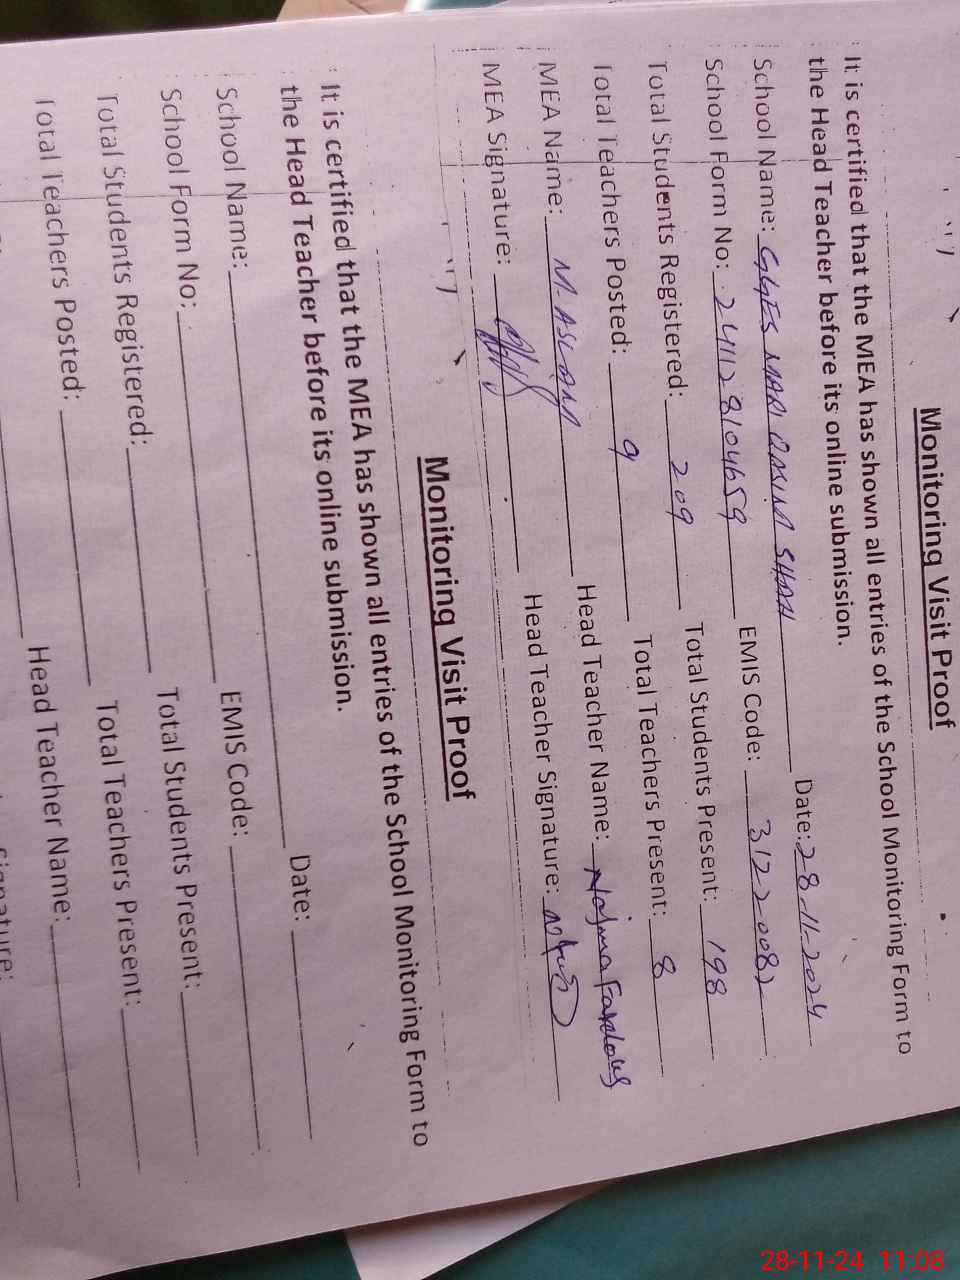 Monitoring Visit Proof
It is certified that the MEA has shown all entries of the School Monitoring Form to
the Head Teacher before its online submission.
School Name: GGES MARI QASIM SHAH Date: 28-11-2024
School Form No: 241128104659 EMIS Code: 31220082
Total Students Registered: 209 Total Students Present: 198
Total Teachers Posted: 9 Total Teachers Present: 8
MEA Name: M. ASLAM Head Teacher Name: Najma Fardous
MEA Signature: Head Teacher Signature:
Monitoring Visit Proof
It is certified that the MEA has shown all entries of the School Monitoring Form to
the Head Teacher before its online submission.
School Name: Date:
School Form No: EMIS Code:
Total Students Registered: Total Students Present:
Total Teachers Posted: Total Teachers Present:
Head Teacher Name:
Signature:
28-11-24 11:08